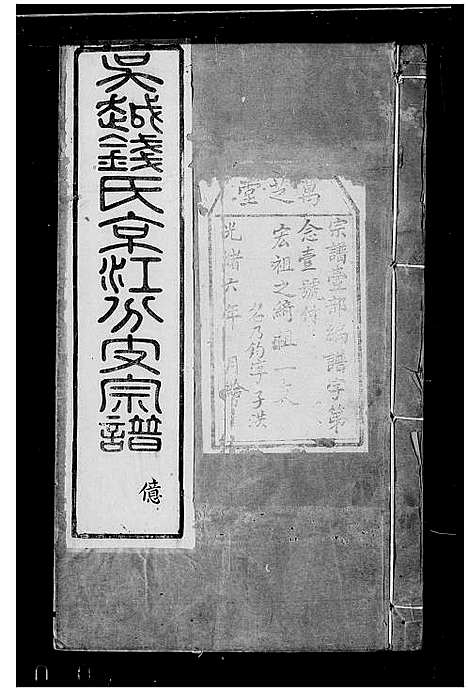 吳越錢氏京江分支宗譜
億
萬芝堂
宗譜壹部編譜字第
念壹號付
宏祖之綺祖一支
名乃鈞字子洪
光緒六年 月給